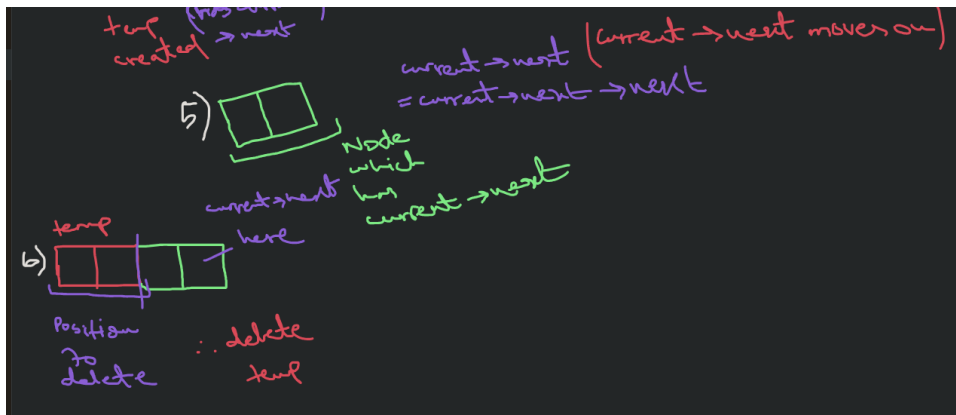 temp
created → next
current → next (current → next moves on)
= current → next → next
5)
Node
which
has
current → next
current → next
here
temp
6)
Position
To
delete
∴ delete
temp